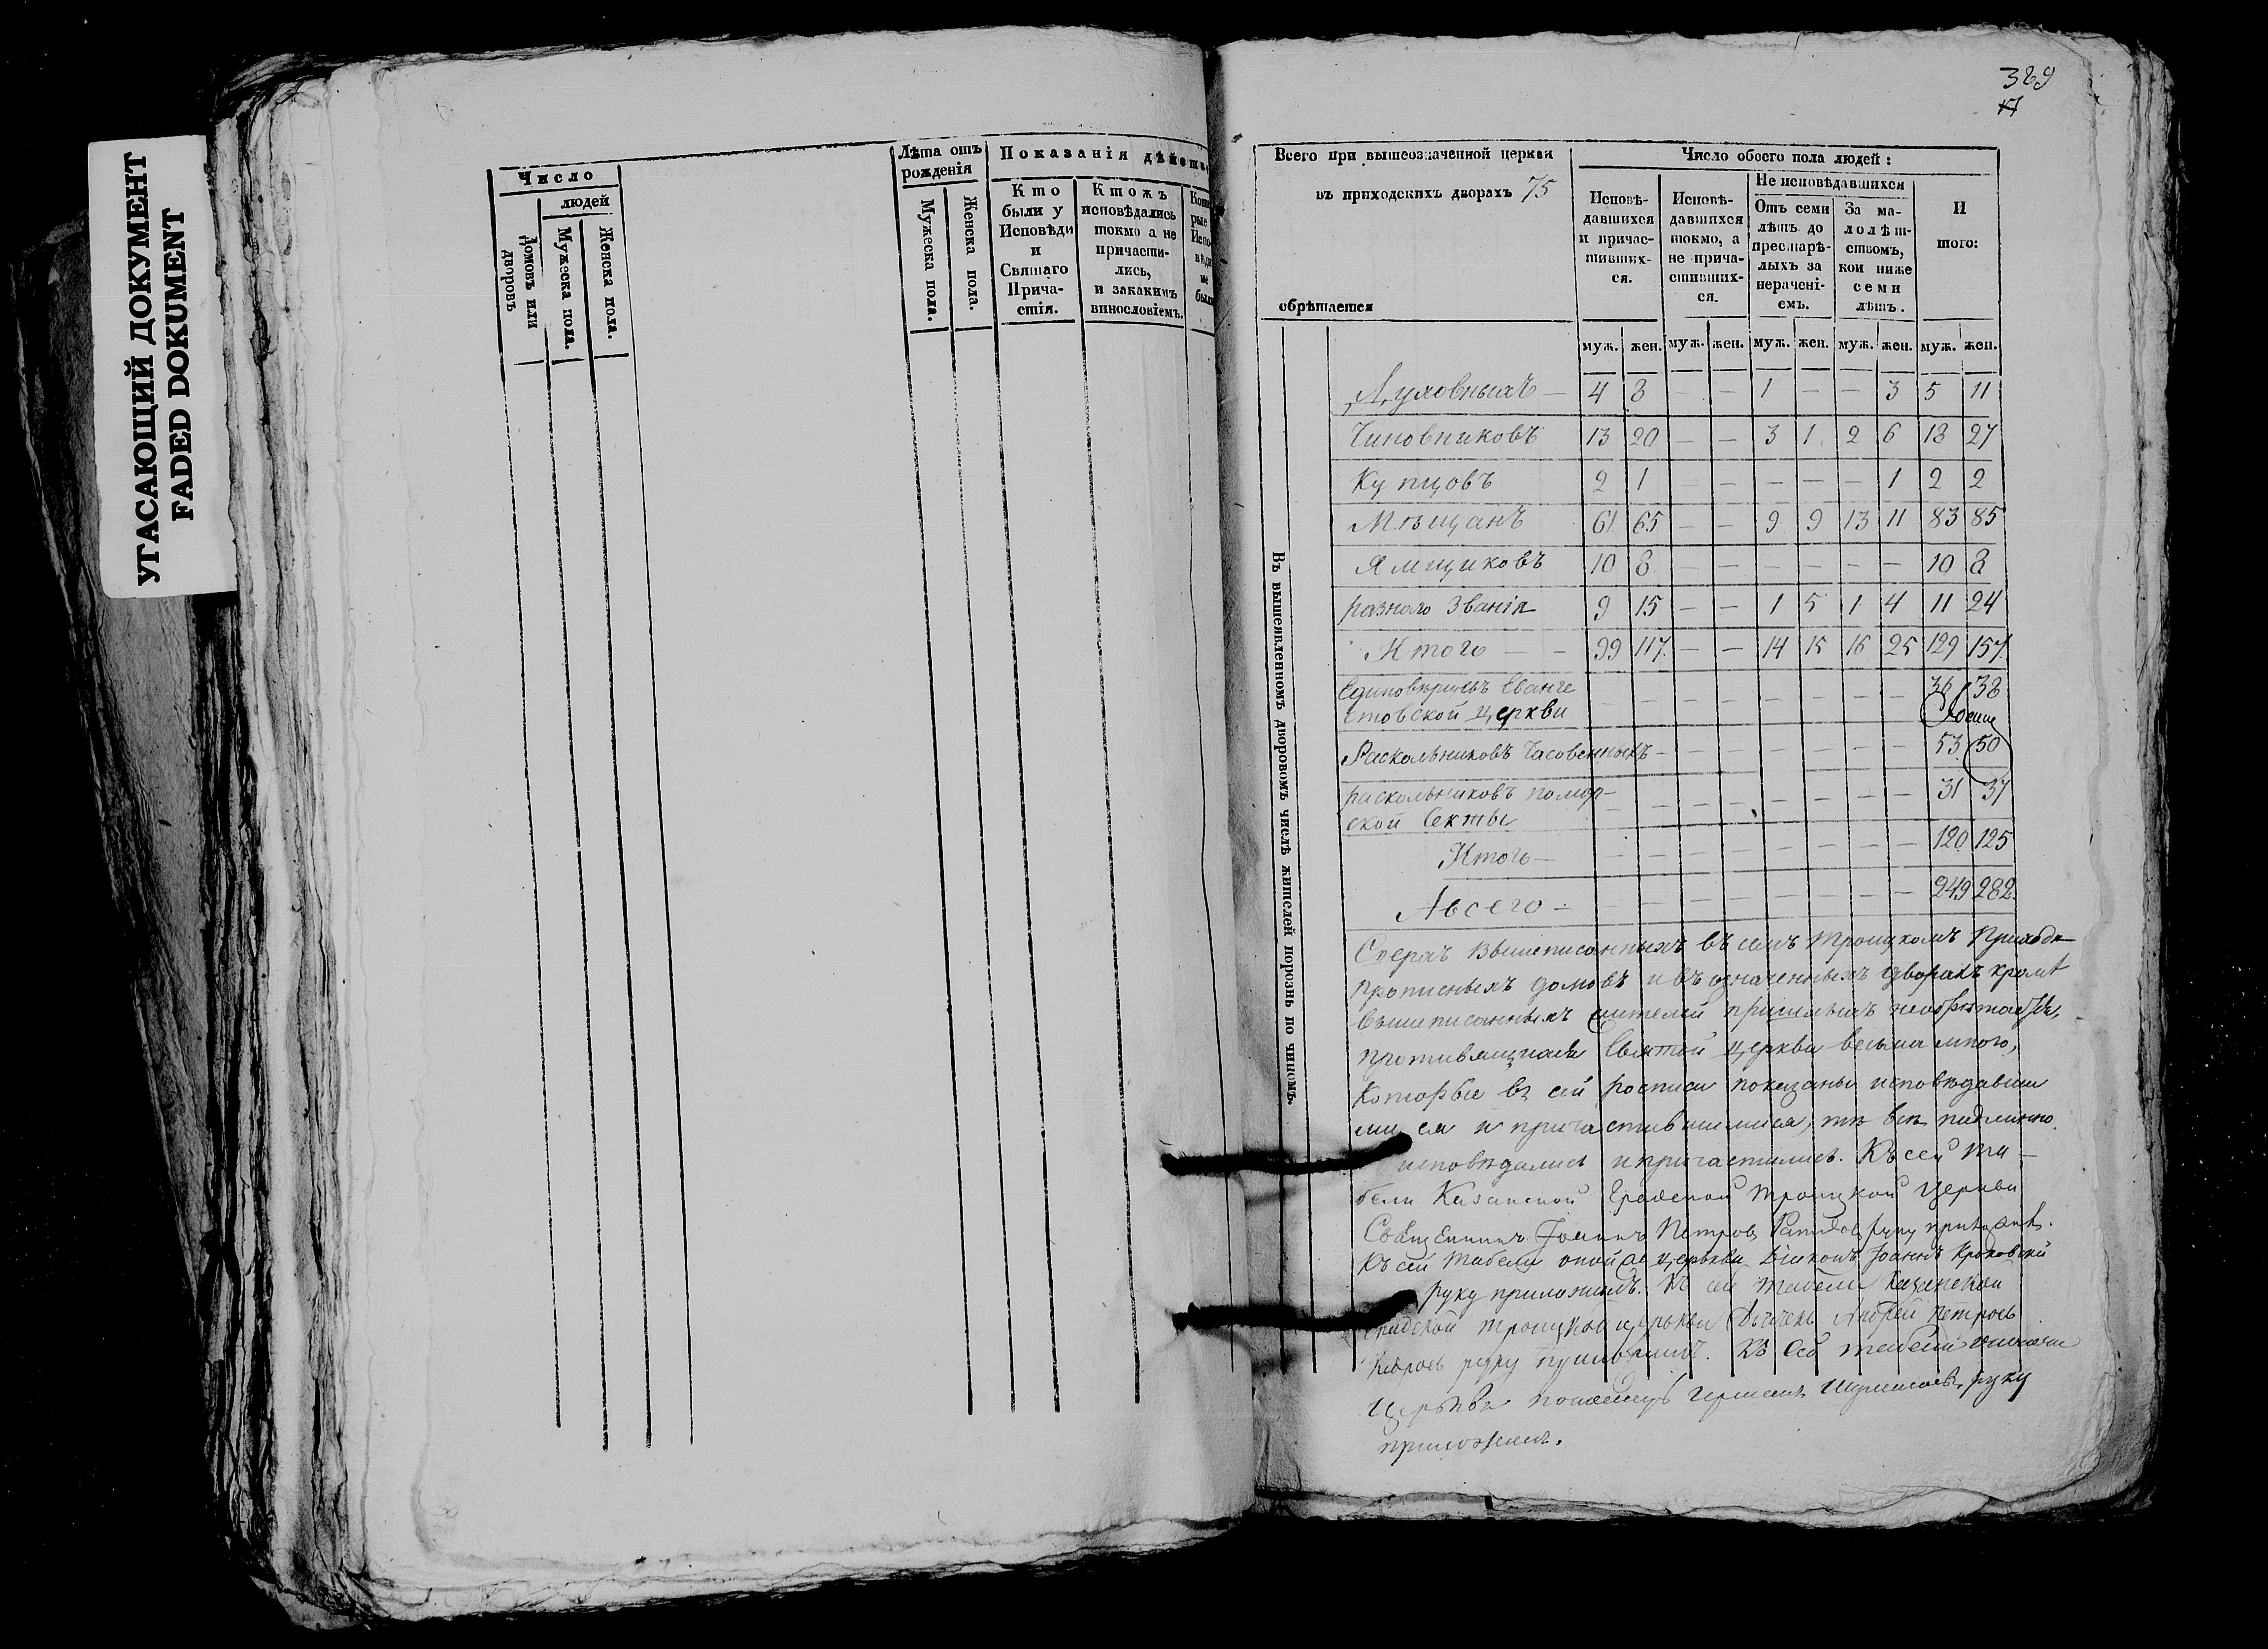 УГАСАЮЩИЙ ДОКУМЕНТ
FADED DOKUMENT
Число
людей
Домовъ или дворовъ
Мужеска пола.
Женска пола.
Лѣта отъ рожденія
Мужеска пола.
Женска пола.
Показанія дѣйств
Кто были у Исповѣди и Святаго Причастія.
Ктожъ исповѣдались токмо а не причастились, и закакимъ винословіемъ.
389
Всего при вышеозначенной церкви
въ приходскихъ дворахъ 75
обрѣтается
Число обоего пола людей:
Исповѣдавшихся и причастившихся.
Исповѣдавшихся токмо, а не причастившихся.
Не исповѣдавшихся
Отъ семи лѣтъ до престарѣлыхъ за нераченіемъ.
За малолѣтствомъ, кои ниже семи лѣтъ.
Итого:
муж. жен. муж. жен. муж. жен. муж. жен. муж. жен.
Въ вышеявленномъ дворовомъ числѣ жителей порознь по чиномъ.
Духовныхъ — 4 8 — — 1 — — 3 5 11
Чиновниковъ 13 20 — — 3 1 2 6 18 27
Купцовъ 2 1 — — — — — 1 2 2
Мѣщанъ 61 65 — — 9 9 13 11 83 85
Ямщиковъ 10 8 — — — — — — 10 8
разнаго Званія 9 15 — — 1 5 1 4 11 24
Итого — — 99 117 — — 14 15 16 25 129 157
Единовѣрцевъ
церкви — — — — — — — — 36 38
Раскольниковъ Часовенныхъ — — — — — — — — 53 50
раскольниковъ помор-
ской Секты — — — — — — — — 31 37
Итого — — — — — — — — — 120 125
Авсего — — — — — — — — — 249 282
вышеписанныхъ въ семъ Троицкомъ Приходѣ
прописныхъ домовъ и въ означенныхъ дворахъ кромѣ
вышеписанныхъ жителей
противящихся Святой церкви весьма много,
Которые въ сей росписи показаны исповѣдавши
ми ся и причастившимися, тѣ всѣ подлинно
исповѣдались и причастились. Къ сей та-
бели Казанской Градской Троицкой Церкви
Священникъ Іоаннъ Петровъ руку приложилъ.
Къ сей табели оной же церкви Діаконъ Іоаннъ
руку приложилъ. Къ сей табели Казанской
градской Троицкой церкви Дьячекъ Андрей Петровъ
руку приложилъ. Къ сей табели
Церкви пономарь руку
приложилъ.